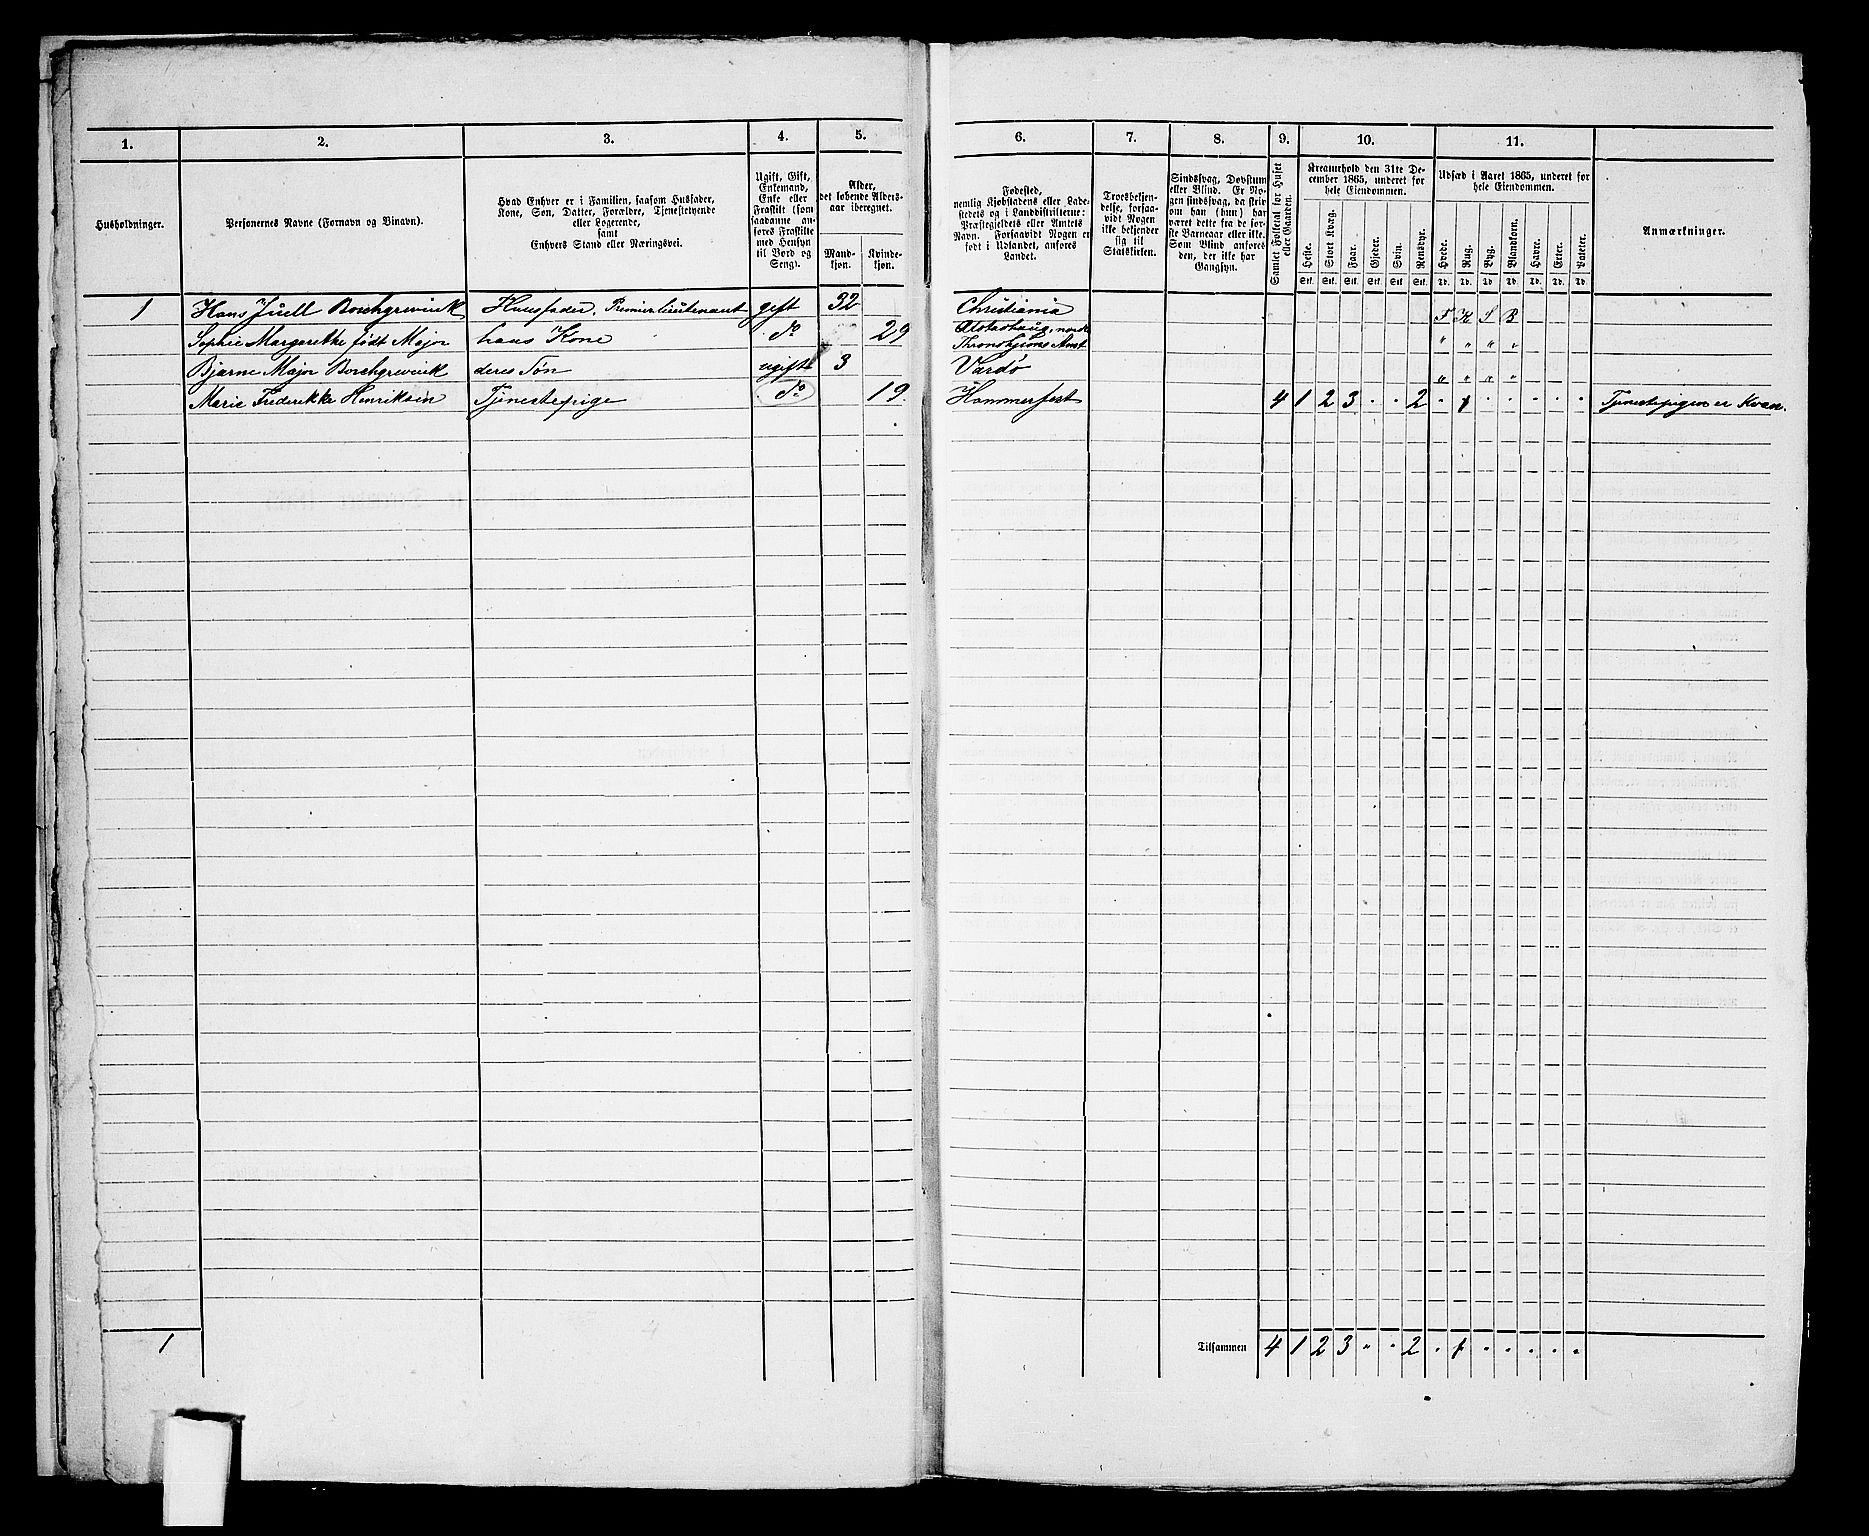 1. 2. 3. 4. 5. 6. 7. 8. 9. 10. 11.
Husholdninger.
Personernes Navne (Fornavn og Binavn).
Hvad Enhver er i Familien, saasom Husfader,
Kone, Søn, Datter, Forældre, Tjenestetyende
eller Logerende,
samt
Enhvers Stand eller Næringsvei.
Ugift, Gift,
Enkemand,
Enke eller
Fraskilt (som
saadanne an-
føres Fraskilte
med Hensyn
til Bord og
Seng).
Alder,
det løbende Alders-
aar iberegnet.
Mand-
kjøn.
Kvinde-
kjøn.
Fødested,
nemlig Kjøbstadens eller Lade-
stedets og i Landdistrikterne:
Præstegjeldets eller Amtets
Navn. Forsaavidt Nogen er
født i Udlandet, anføres
Landet.
Troesbekjen-
delse, forsaa-
vidt Nogen
ikke bekjender
sig til
Statskirken.
Sindssvag, Døvstum
eller Blind. Er No-
gen sindssvag, da skriv
om han (hun) har
været dette fra de før-
ste Barneaar eller ikke.
Som Blind anføres
den, der ikke har
Gangsyn.
Samlet Folketal for Huset
eller Gaarden.
Kreaturhold den 31te De-
cember 1865, underet for
hele Eiendommen.
Heste.
Stort Kvæg.
Faar.
Gjeder.
Svin.
Rensdyr.
Stk. Stk. Stk. Stk. Stk. Stk.
Udsæd i Aaret 1865, underet for
hele Eiendommen.
Hvede.
Rug.
Byg.
Blandkorn.
Havre.
Erter.
Poteter.
Td. Td. Td. Td. Td. Td. Td.
Anmærkninger.
1 Hans Juell Borchgrevink Huusfader, Premierlieutenant gift 32 Christiania
F K S B
Sophie Margarethe født Major hans Kone do 29 Alstadhaug, nordre
Throndhjems Amt " " " "
Bjarne Major Borchgrevink deres Søn ugift 3 Vardø
" " " "
Marie Frederikke Henriksen Tjenestepige do 19 Hammerfest 4 1 2 3 " " 2 " 1 " " " " " Tjenestepigen er Kvæn.
1 Tilsammen 4 1 2 3 " " 2 " 1 " " " " "